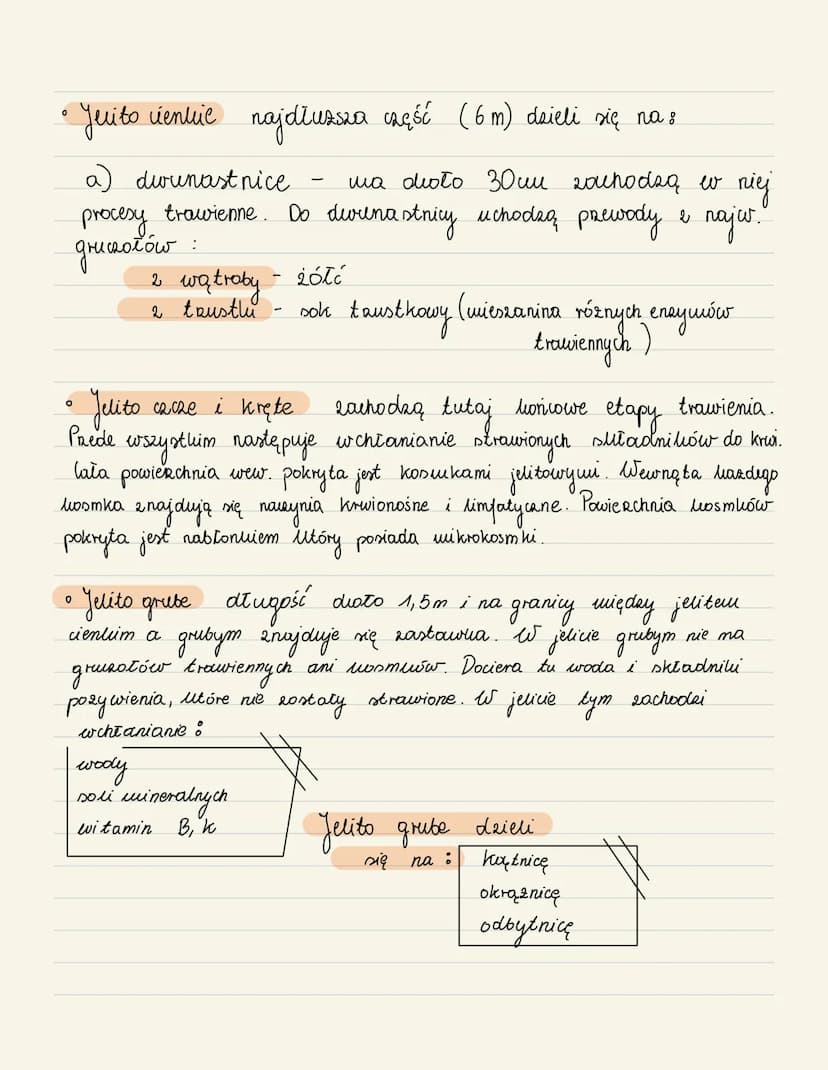 • Jelito cienkie najdłuższa część (6 m) dzieli się na:
a) dwunastnice - ma około 30cm zachodzą w niej
procesy trawienne. Do dwunastnicy uchodzą przewody z najw.
gruczołów :
z wątroby - żółć
z trzustki - sok trzustkowy (mieszanina różnych enzymów
trawiennych)
• Jelito czcze i kręte zachodzą tutaj końcowe etapy trawienia.
Przede wszystkim następuje wchłanianie strawionych składników do krwi.
Cała powierzchnia wew. pokryta jest kosmkami jelitowymi. Wewnątz każdego
kosmka znajdują się naczynia krwionośne i limfatyczne. Powierzchnia kosmków
pokryta jest nabłonkiem który posiada mikrokosmki.
• Jelito grube długość około 1,5m i na granicy między jelitem
cienkim a grubym znajduje się zastawka. W jelicie grubym nie ma
gruczołów trawiennych ani kosmków. Dociera tu woda i składniki
pożywienia, które nie zostały strawione. W jelicie tym zachodzi
wchłanianie :
wody
soli mineralnych
witamin B, K
Jelito grube dzieli
się na :
kątnicę
okrążnicę
odbytnicę